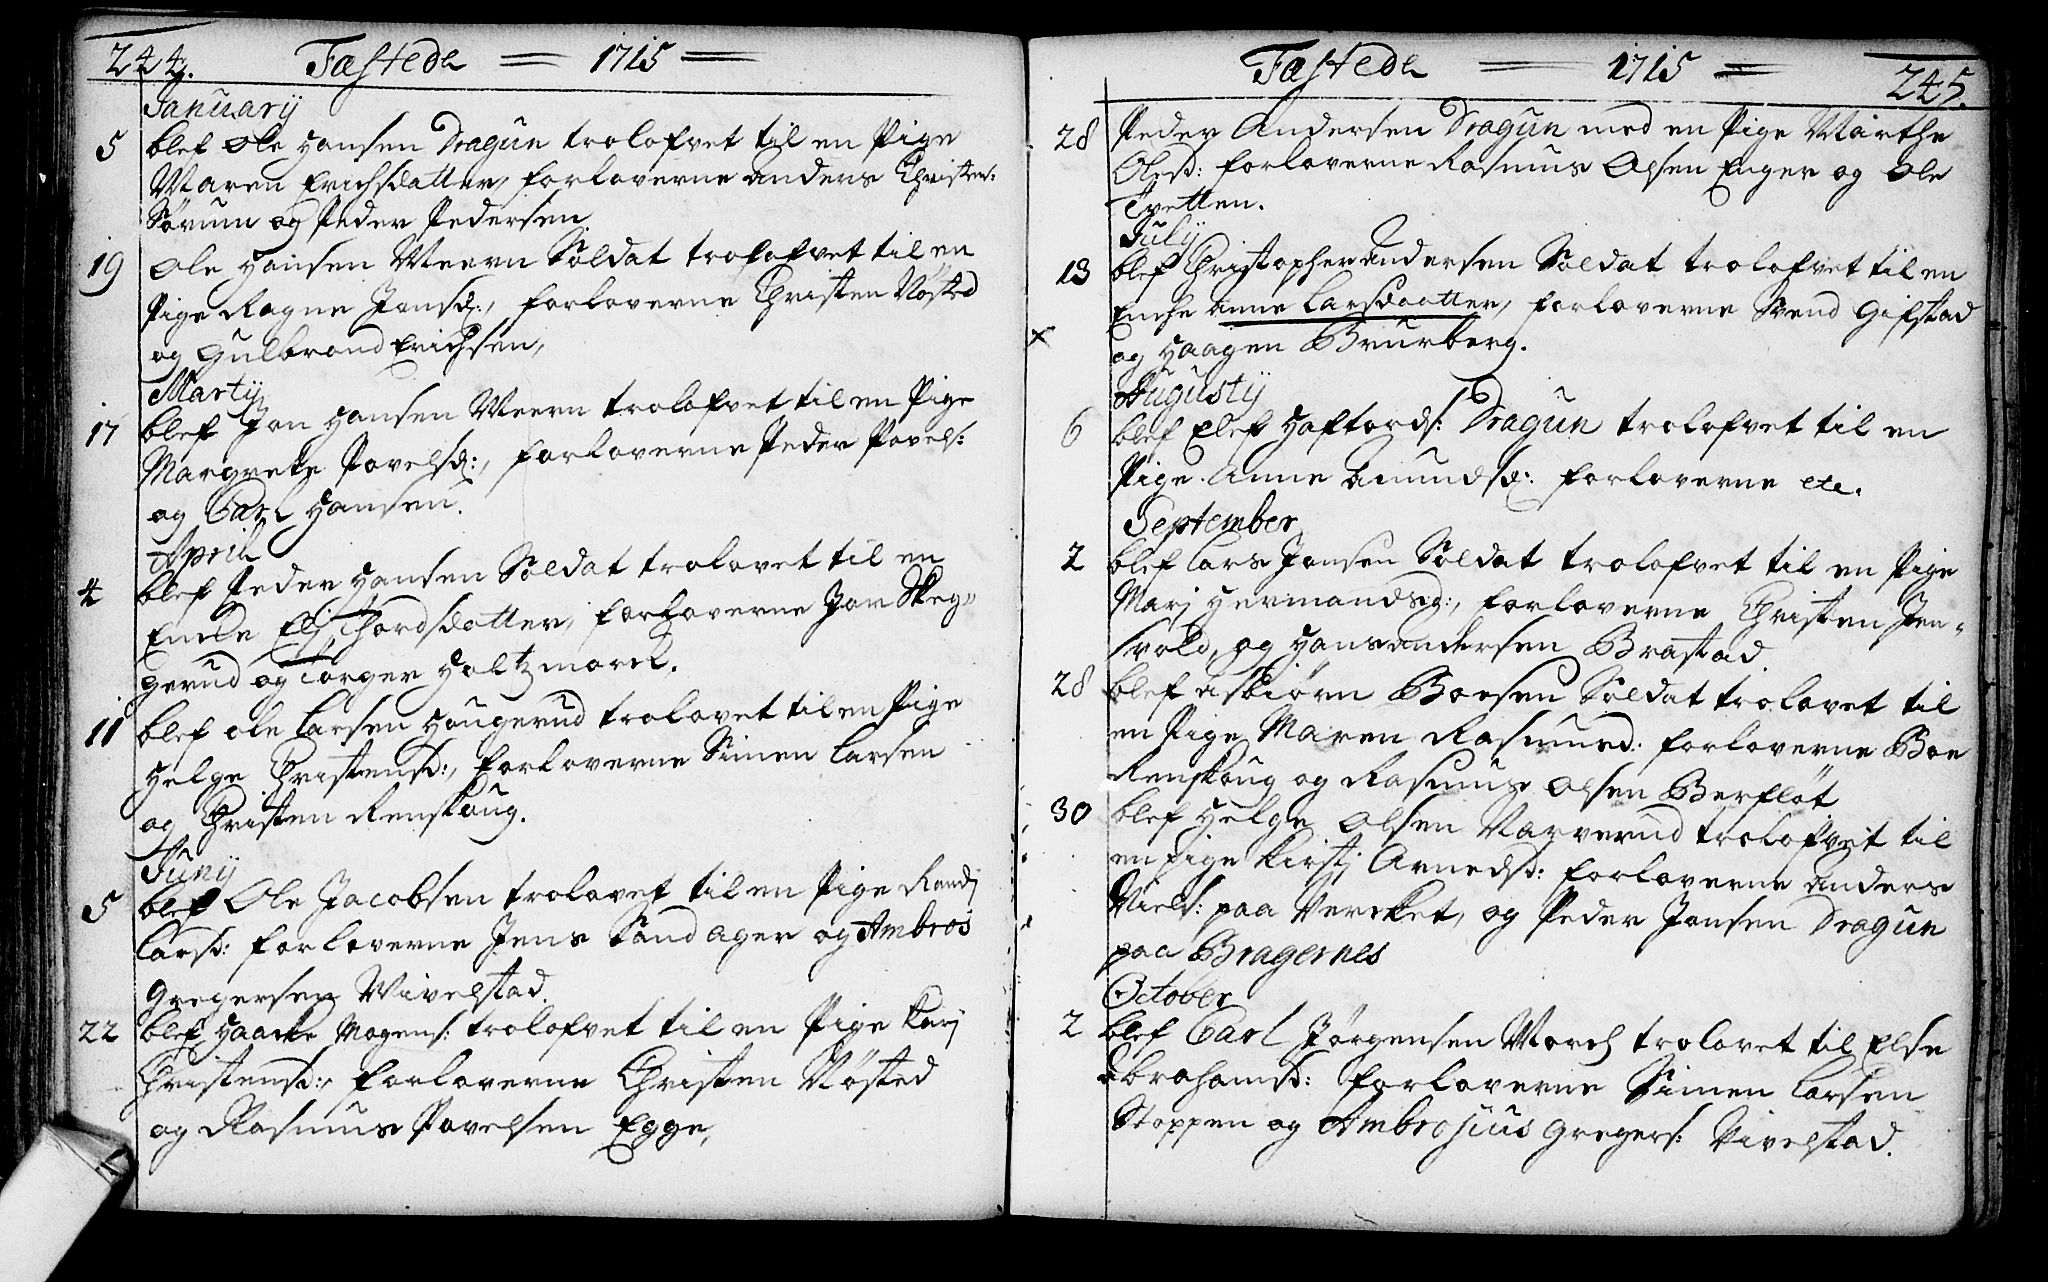 244. Fæstede = 1715 =
Januarij
5 blef Ole Hansen Dragun trolofvet til en Pige
Maren Erichsdatter, forloverne Anders Christens:
Sørum og Peder Pedersen
19 Ole Hansen Meern Soldat trolofvet til en
Pige Ragne Jonsd:, forloverne Christen Nøsted
og Gulbrand Erichsen,
Martij
17 blef Jon Hansen Meern trolofvet til en Pige
Margrete Povelsd:, forloverne Peder Povels:
og Carl Hansen.
April
4 blef Peder Hansen Soldat trolovet til en
Encke Elj Thordsdatter, forloverne Jon Skeg-
gerud og Torger Holtzmarck,
11 blef Ole Larsen Haugerud trolovet til en Pige
Helge Christensd:, forloverne Simen Larsen
og Christen Renskaug.
Junij
5 blef Ole Jacobsen trolovet til en Pige Randj
Larsd: forloverne Jens Sandager og Ambros
Gregersen Wivelstad.
22 blef Haacke Mogens: trolofvet til en Pige Karj
Christensd:, forloverne Christen Nøsted
og Rasmus Povelsen Egge,
Fæstede = 1715 = 245.
28 Peder Andersen Dragun med en Pige Marthe
Olesd: forloverne Rasmus Olsen Enger og Ole
Tvetten.
Julij
13 blef Christopher Andersen Soldat trolofvet til en
Encke Anne Larsdaatter, forloverne Svend Gifstad
x og Haagen Brurberg.
Augustij
6 blef Elef Haftords: Dragun trolofvet til en
Pige Anne Amundsd: forloverne etc.
September
2 blef Lars Jonsen Soldat trolofvet til en Pige
Marj Hermandsd:, forloverne Christen Jen-
svold, og Hans Andersen Brastad
28 blef Asbiørn Boesen Soldat trolovet til
en Pige Maren Rasmusd: forloverne Boe
Renskaug og Rasmus Olsen Berfløt
30 blef Helge Olsen Varverud trolofvet til
en Pige Kirstj Arnedsd: forloverne Anders
Niels: paa Vercket, og Peder Jonsen Dragun
paa Bragernes
October
2 blef Carl Jørgensen Morch trolovet til Else
Abrahamsd: forloverne Simen Larsen
Stoppen og Ambrosius Gregers: Vivelstad.